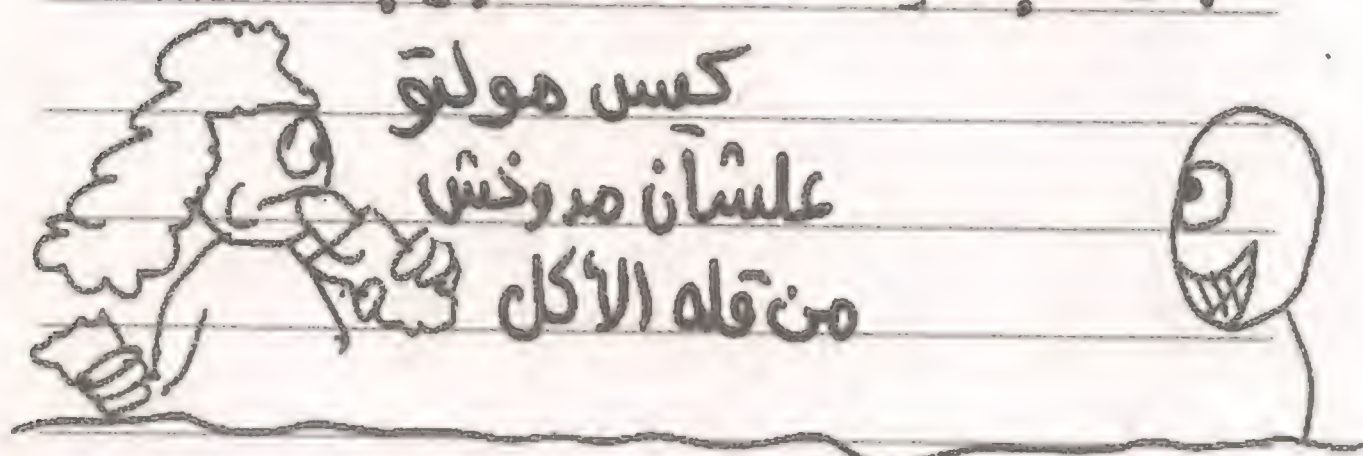 كيس مولتو
علشان مدوخش
من قله الأكل